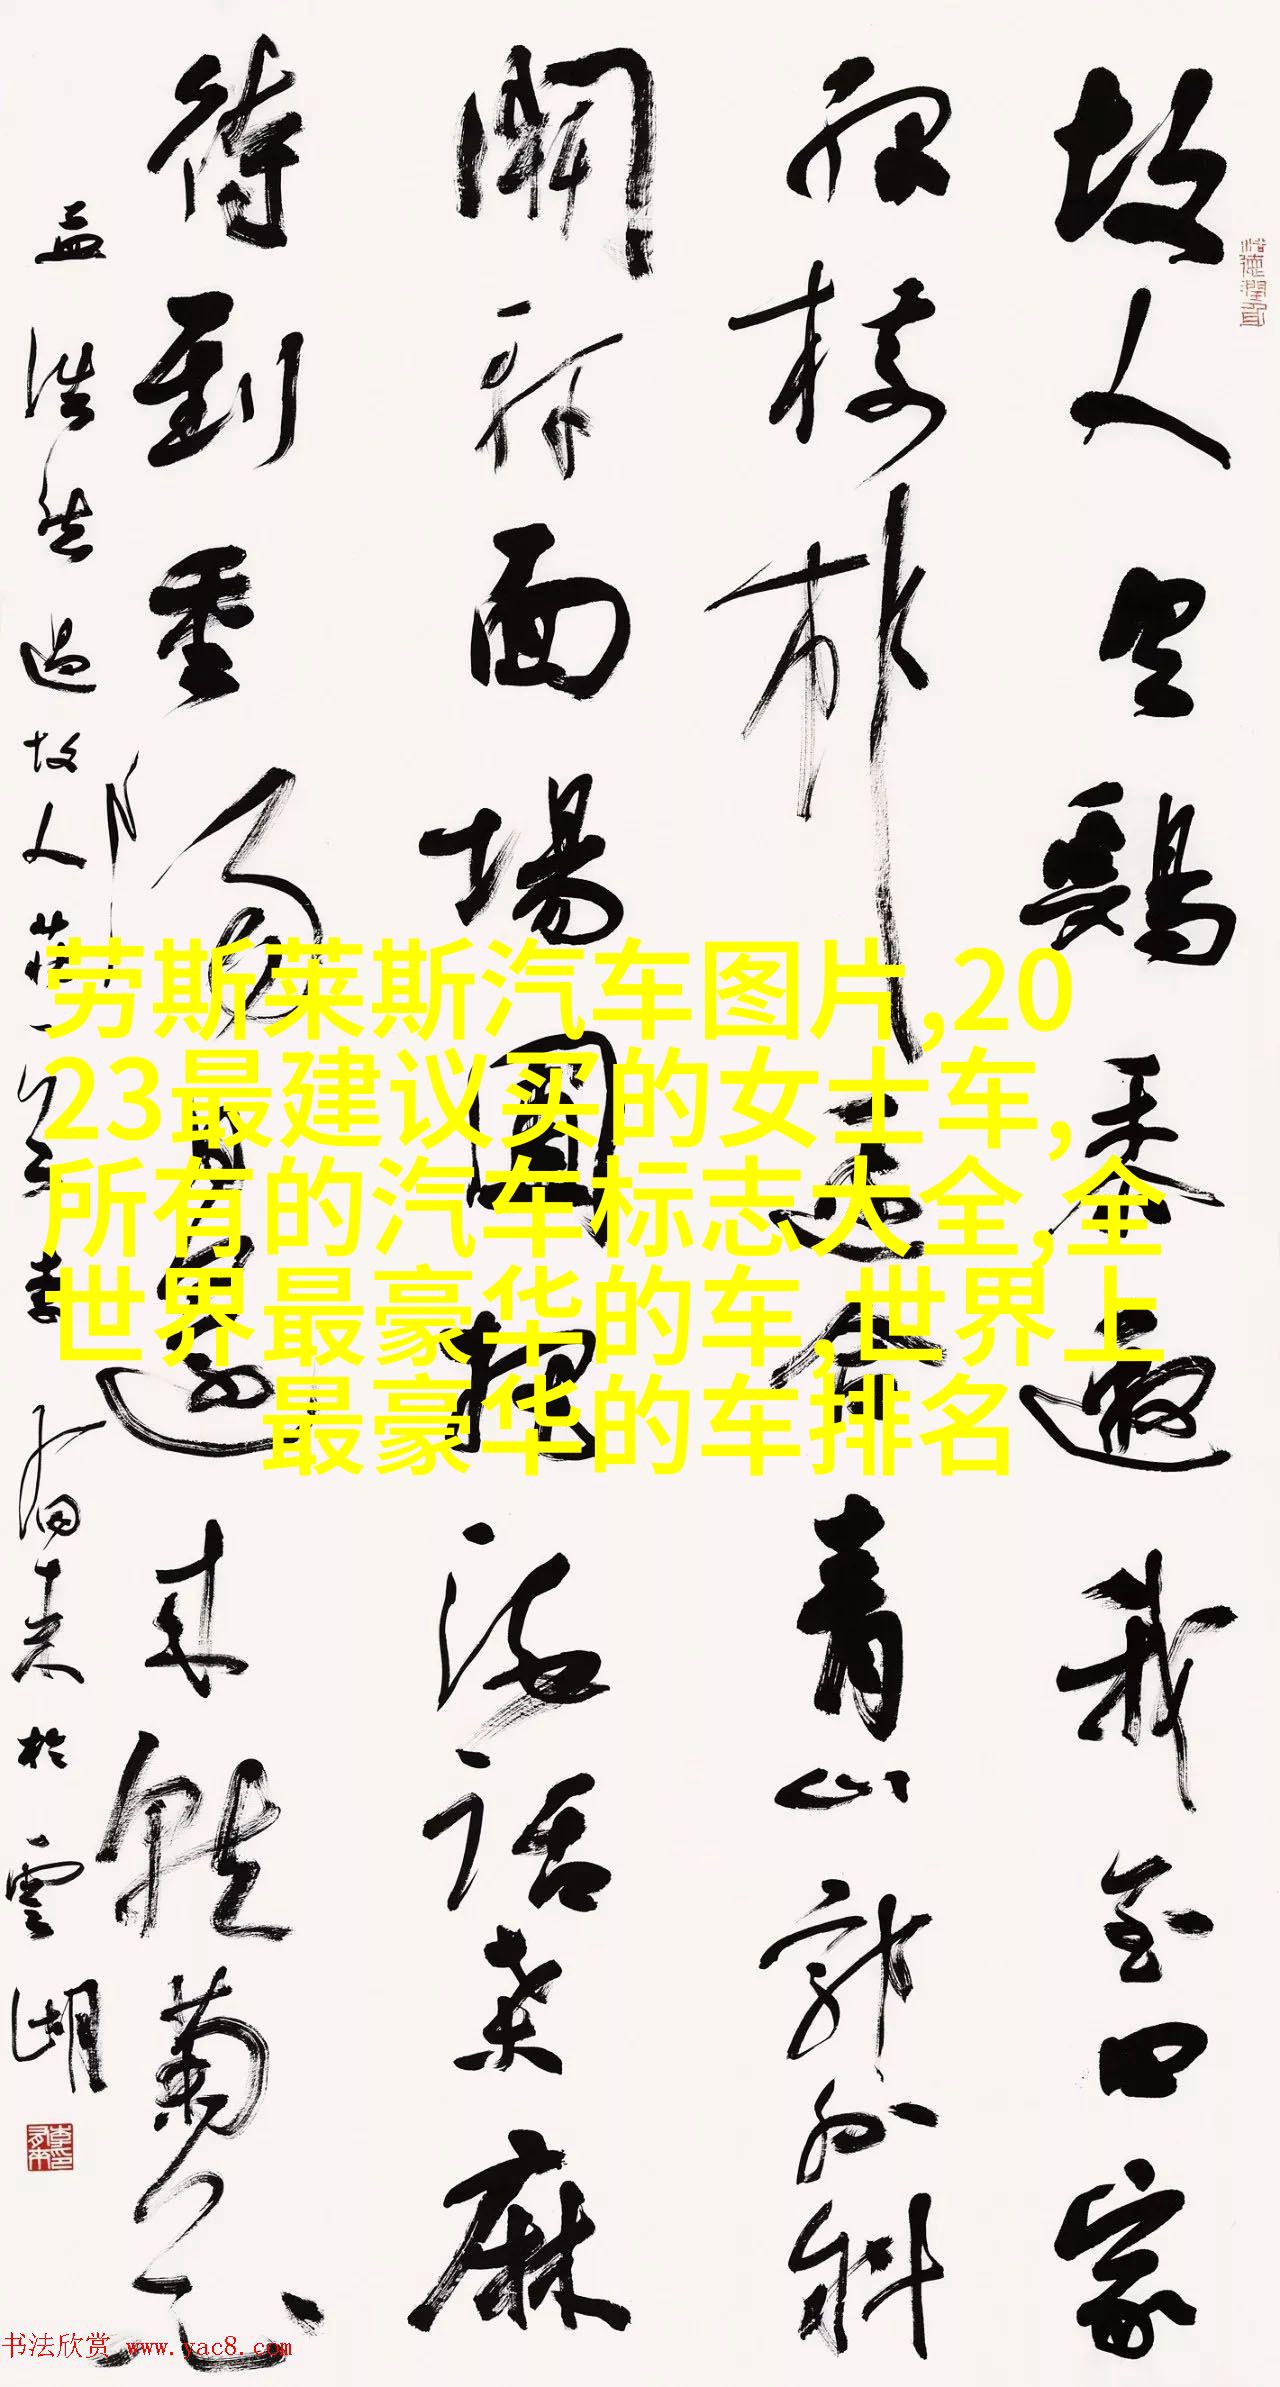 故人具鷄黍邀我至田家
綠樹村邊合青山郭外斜
開軒面場圃把酒話桑麻
待到重陽日還来就菊花
孟浩然過故人莊 李有来於雲湖
劳斯莱斯汽车图片,20
23最建议买的女士车,
所有的汽车标志大全,全
世界最豪华的车,世界上
最豪华的车排名
书法欣赏 www.yac8.com